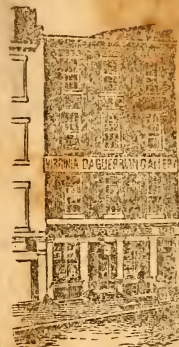 VIRGINIA DAGUERRIAN GALLERY